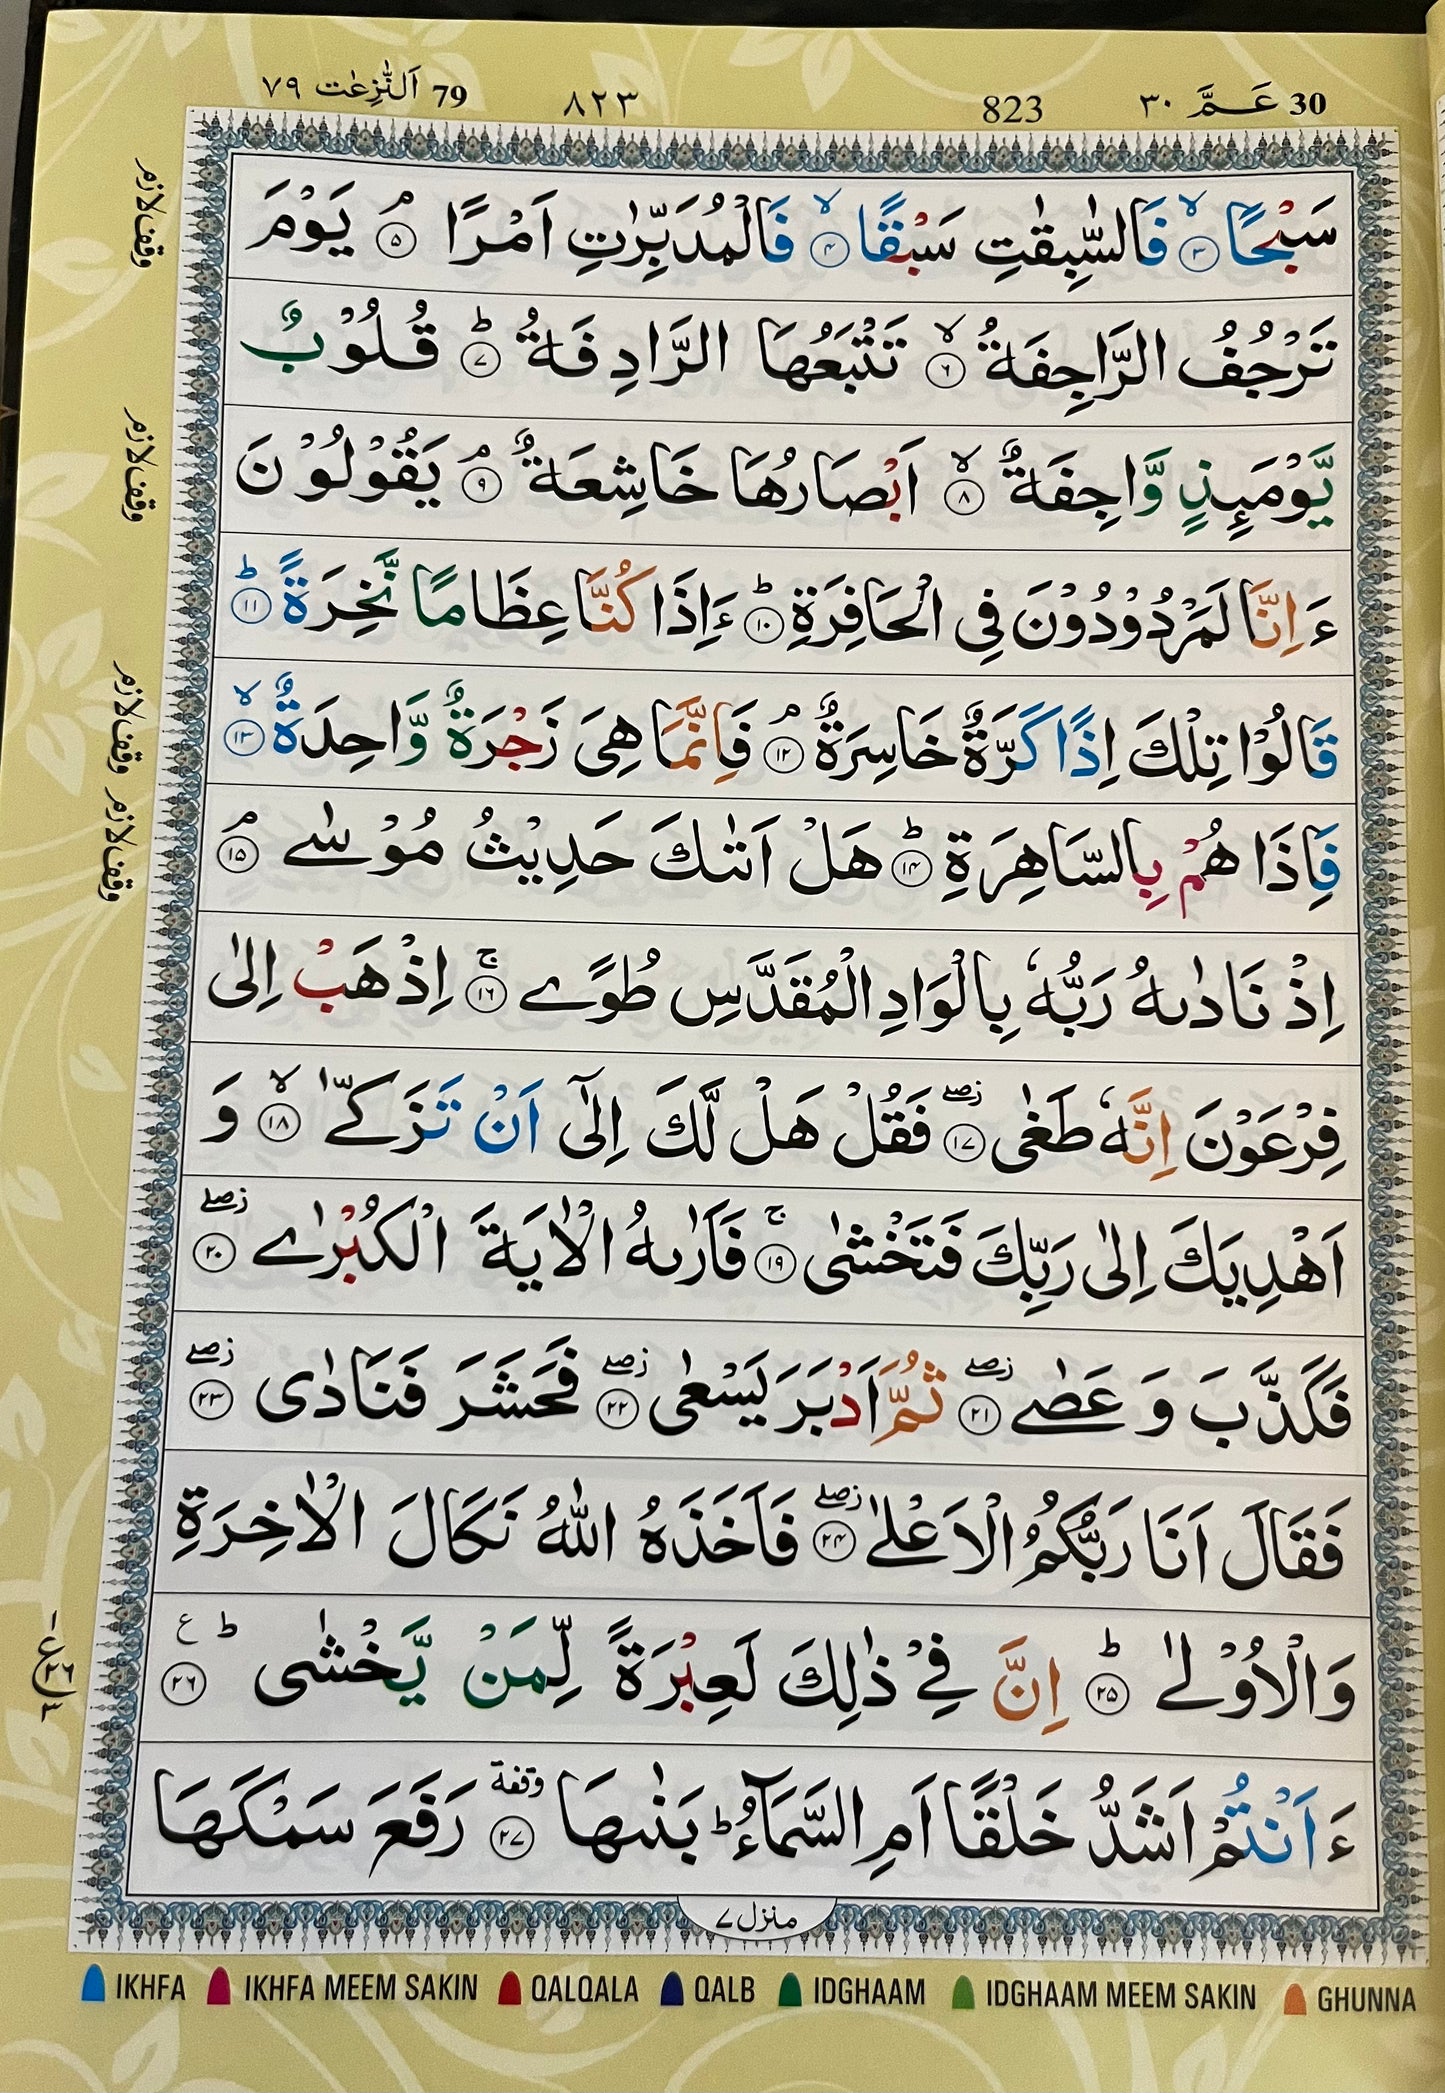 79 اَلنّٰزِعٰت ٧٩
٨٢٣
823
30 عَـمَّ ٣٠
سَبْحًا ۙ﴿۳﴾ فَالسّٰبِقٰتِ سَبْقًا ۙ﴿۴﴾ فَالْمُدَبِّرٰتِ اَمْرًا ۘ﴿۵﴾ يَوْمَ
تَرْجُفُ الرَّاجِفَةُ ۙ﴿۶﴾ تَتْبَعُهَا الرَّادِفَةُ ؕ﴿۷﴾ قُلُوْبٌ
يَّوْمَىِٕذٍ وَّاجِفَةٌ ۙ﴿۸﴾ اَبْصَارُهَا خَاشِعَةٌ ۘ﴿۹﴾ يَقُوْلُوْنَ
ءَاِنَّا لَمَرْدُوْدُوْنَ فِي الْحَافِرَةِ ؕ﴿۱۰﴾ ءَاِذَا كُنَّا عِظَامًا نَّخِرَةً ؕ﴿۱۱﴾
قَالُوْا تِلْكَ اِذًا كَرَّةٌ خَاسِرَةٌ ۘ﴿۱۲﴾ فَاِنَّمَا هِىَ زَجْرَةٌ وَّاحِدَةٌ ۙ﴿۱۳﴾
فَاِذَا هُمْ بِالسَّاهِرَةِ ؕ﴿۱۴﴾ هَلْ اَتٰىكَ حَدِيْثُ مُوْسٰے ۘ﴿۱۵﴾
اِذْ نَادٰىهُ رَبُّهٗ بِالْوَادِ الْمُقَدَّسِ طُوًے ۚ﴿۱۶﴾ اِذْهَبْ اِلٰى
فِرْعَوْنَ اِنَّهٗ طَغٰى ۖ﴿۱۷﴾ فَقُلْ هَلْ لَّكَ اِلٰٓى اَنْ تَزَكّٰے ۙ﴿۱۸﴾ وَ
اَهْدِيَكَ اِلٰى رَبِّكَ فَتَخْشٰى ۚ﴿۱۹﴾ فَاَرٰىهُ الْاٰيَةَ الْكُبْرٰے ۖ﴿۲۰﴾
فَكَذَّبَ وَ عَصٰے ۖ﴿۲۱﴾ ثُمَّ اَدْبَرَ يَسْعٰى ۖ﴿۲۲﴾ فَحَشَرَ فَنَادٰى ۖ﴿۲۳﴾
فَقَالَ اَنَا رَبُّكُمُ الْاَعْلٰے ۖ﴿۲۴﴾ فَاَخَذَهُ اللّٰهُ نَكَالَ الْاٰخِرَةِ
وَالْاُوْلٰے ؕ﴿۲۵﴾ اِنَّ فِيْ ذٰلِكَ لَعِبْرَةً لِّمَنْ يَّخْشٰى ؕ﴿۲۶﴾ ع
ءَاَنْتُمْ اَشَدُّ خَلْقًا اَمِ السَّمَآءُ ؕ بَنٰىهَا وقفة ﴿۲۷﴾ رَفَعَ سَمْكَهَا
وقف لازم
وقف لازم
وقف لازم
وقف لازم
١ ع ٢٦ ٣
منزل ٧
IKHFA IKHFA MEEM SAKIN QALQALA QALB IDGHAAM IDGHAAM MEEM SAKIN GHUNNA